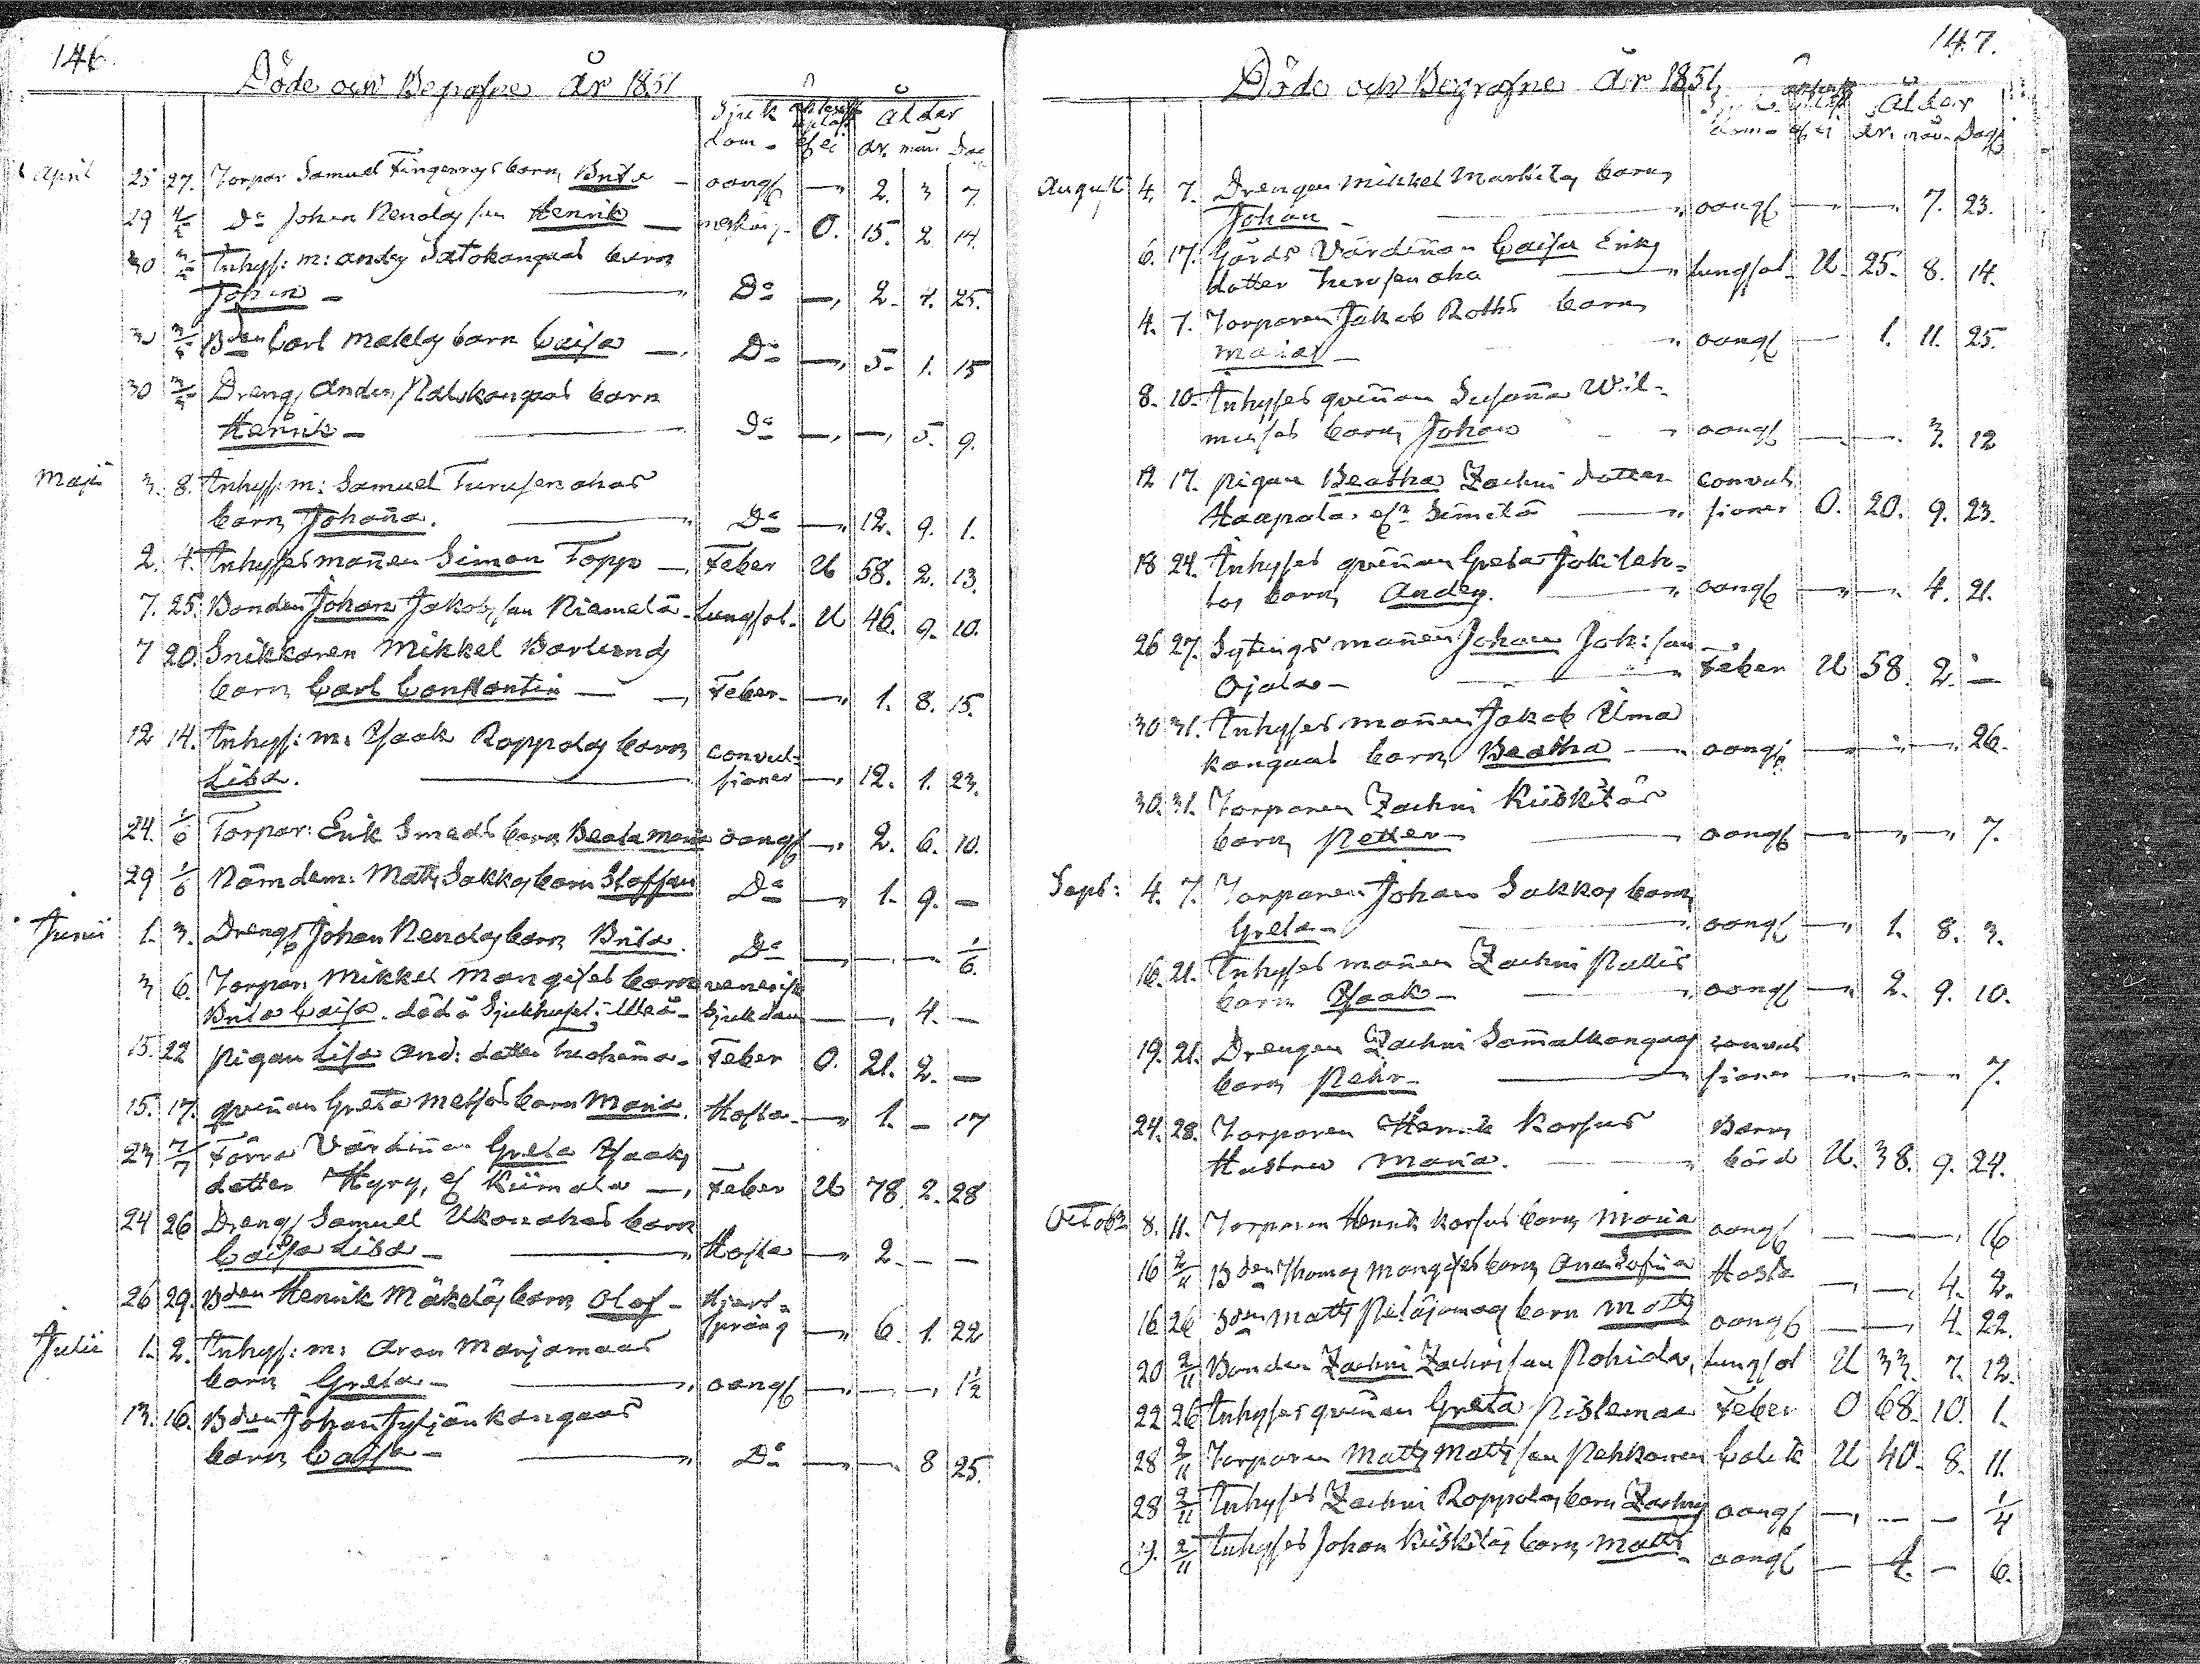 146.
Döde och Begrafne År 1851
Sjuk dom - Ålder
år. mån. Dag
April 25 27. Torpar Samuel Fingerroos barn Brita - oangf — 2. 3 7.
29 4/5 Do Johan Rendas son Henrik — O. 15. 2 14.
30 Inhys: m: Anders Satokangas barn
Johan — Do — 2. 4. 25.
30 Bden Carl Makelas barn Caisa — Do — 5. 1. 15
30 Dreng Anders Palokangas barn
Henrik — Do — — 5. 9.
Maji 3. 8. Inhys: m: Samuel Turusenahos
barn Johaña. — Do — 12. 9. 1.
2. 4. Inhyses mañen Simon Topp — Feber U 58. 2. 13.
7. 25. Bonden Johan Jakobs son Niemelä - Lungsot - U 46. 9. 10.
7 20. Snikkaren Mikkel Barlunds
barn Carl Constantin — Feber - — 1. 8. 15.
12 14. Inhys: m: Isaak Roppolas barn convul-
Lisa. — sioner — 12. 1. 23.
24. 1/6 Torpar: Erik Smeds barn Beata Maria oangf — 2. 6. 10.
29 1/6 Nämdem: Matts Sakkos barn Staffan Do — 1. 9. —
Junii 1. 3. Drengs Johan Rendas barn Brita. Do — — — 1/6.
3 6. Torpar: Mikkel Mangises barn venerisk
Brita Caisa. död å Sjukhuset i Uleå - Sjukdom — — 4. —
15. 22 pigan Lisa And: dotter - Feber O. 21. 2. —
15. 17. qviñan Greta barn Maria. Hosta - — 1. — 17
23 7/7 Förra Värdiñan Greta Isaaks
dotter Hyry, ef Kiimala — Feber U 78. 2. 28
24 26 Drengs Samuel Ukonahos barn
Caisa Lisa — Hosta — 2. — —
26 29. Bden Henrik Mäkeläs barn Olof - Hjert-
språng — 6. 1. 22
Julii 1. 2. Inhys: m: Aron Marjamaas
barn Greta — oangf — — — 1½
13. 16. Bden Johan kangaas
barn Caisa — Do — — 8 25.
147.
Döde och Begrafne År 1851,
Ålder
år. mån. Dag
Augusti 4. 7. Drengen Mikkel Marttilas barn
Johan — oangf — — 7. 23.
6. 17. Gårds Värdiñan Caisa Eriks
dotter Turusenaho — Lungsot - U. 25. 8. 14.
4. 7. Torparen Jakob Roths barn
Maria — oangf — 1. 11. 25.
8. 10. Inhyses qviñan Susaña Wil-
barn Johan oangf — — 3. 12
12 17. pigan Beatha Zachri dotter convul
Haapala. ef Similä — sioner O. 20. 9. 23.
18 24. Inhyses qviñan Greta Jokileh-
tos barn Anders. — oangf — — 4. 21.
26 27. Sytings mañen Johan Joh: son
Ojala — Feber U 58. 2. —
30 31. Inhyses mañen Jakob Uma
kangaas barn Beatha — oangf — — — 26.
30. 31. Torparen Zachri Kiiskiläs
barn Petter — oangf — — — 7.
Sept: 4. 7. Torparen Johan Sakkos barn
Greta — oangf — 1. 8. 3.
16. 21. Inhyses mañen Zachri Pallis
barn Isaak — oangf — 2. 9. 10.
19. 21. Drengen Zachri Samalkangas convul
barn Pehr — sioner — — — 7.
24. 28. Torparen Henrik Korsus Barn
Hustru Maria. — börd U. 38. 9. 24.
Octobr 8. 11. Torparen Henrik Korsus barn Maria oangf — — — 16
16 2/11 Bden Thomas Mangises barn Ana Sofia Hosta — — 4. 2.
16 26 Bden Matts barn Matts oangf — — 4. 22.
20 2/11 Bonden Zachri Zachris son Pohjola, Lungsot U 33. 7. 12.
22 26 Inhyses qviñan Greta Pistemaa Feber O 68. 10. 1.
28 2/11 Torparen Matts Matts son Pehkonen Colik U 40. 8. 11.
28 2/11 Inhyses Zachri Roppolas barn Zachris oangf — — — 1/4
2/11 Inhyses Johan Kiiskiläs barn Matts oangf — 4. — 6.